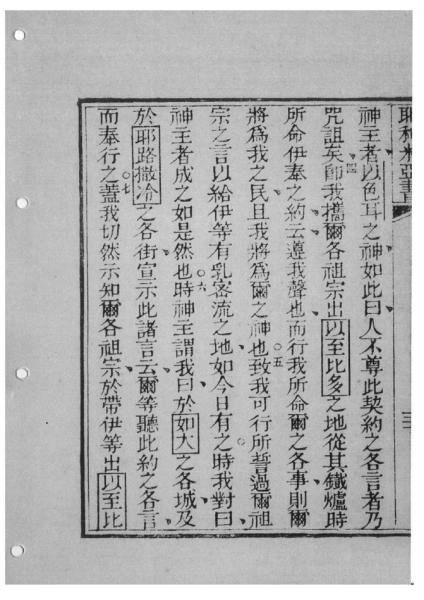 耶利米亞書
神主者以色耳之神如此曰人不尊此契約之各言者乃
咒詛矣四即我攜爾各祖宗出以至比多之地從其鐵爐時
所命伊奉之約云遵我聲也而行我所命爾之各事則爾
將爲我之民且我將爲爾之神也五致我可行所誓過爾祖
宗之言以給伊等有乳蜜流之地如今日有之時我對曰
神主者成之如是然也六時神主謂我曰於如大之各城及
於耶路撒冷之各街宣示此諸言云爾等聽此約之各言
而奉行之七蓋我切然示知爾各祖宗於帶伊等出以至比